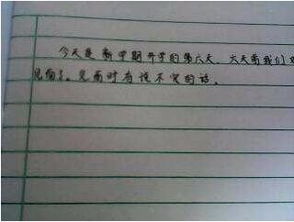 今天是新学期开学的第六天，六天前我们又
见面了。见面时有说不完的话。